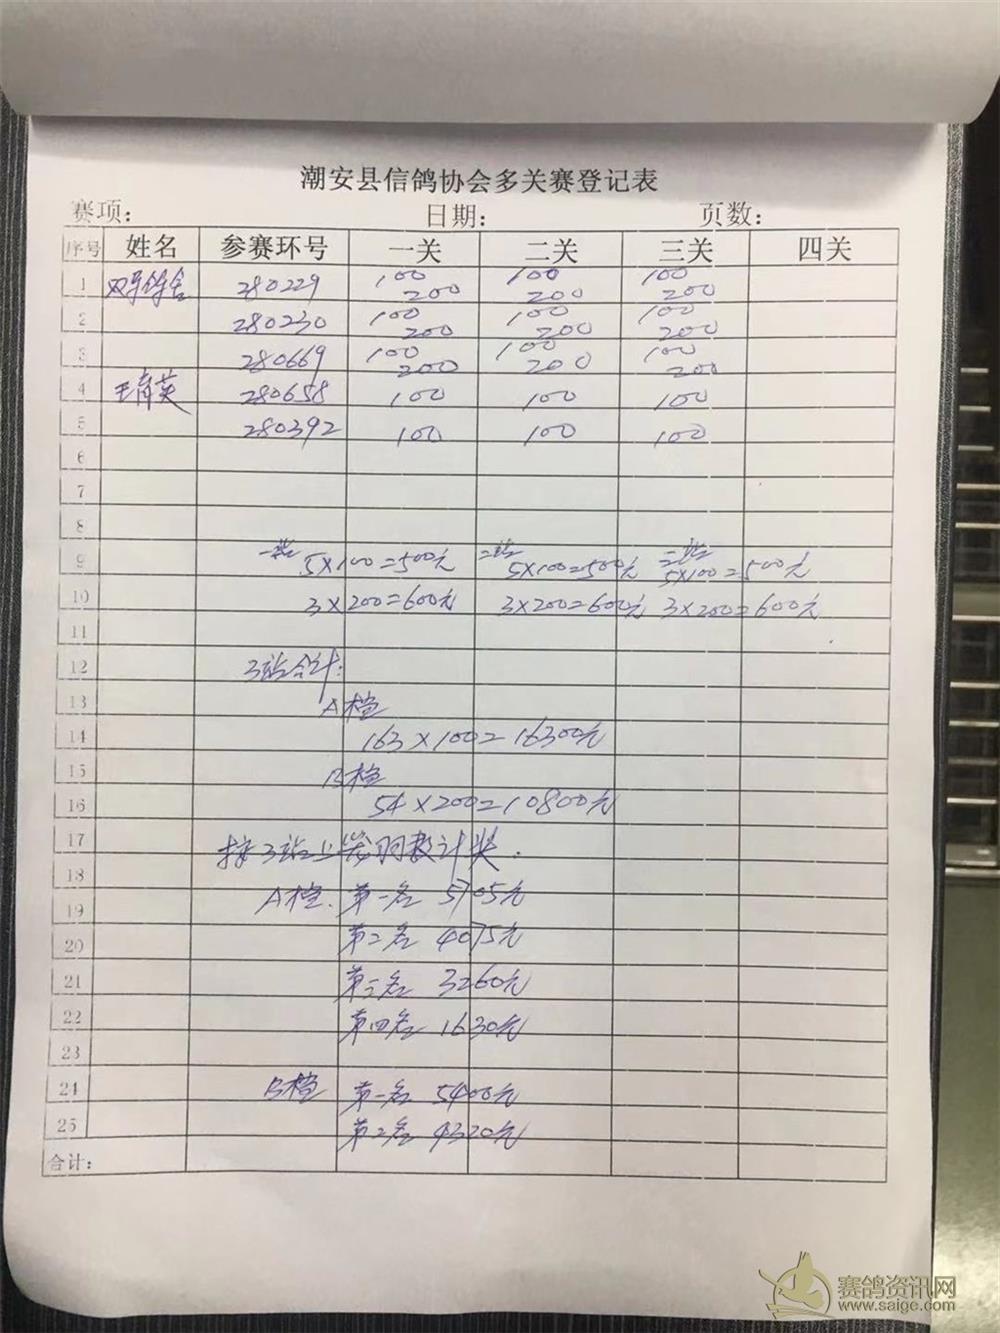 潮安县信鸽协会多关赛登记表
赛项: 日期: 页数:
序号 姓名 参赛环号 一关 二关 三关 四关
1 280229 100 200 100 200 100 200
2 280230 100 200 100 200 100 200
3 280669 100 200 100 200 100 200
4 王育英 280658 100 100 100
5 280392 100 100 100
6
7
8
9 一站 5×100=500元 二站 5×100=500元 三站 5×100=500元
10 3×200=600元 3×200=600元 3×200=600元
11
12 3站合计:
13 A档
14 163×100=16300元
15 B档
16 54×200=10800元
17 按3站上笼羽数计奖.
18
19 A档. 第一名 5705元
20 第二名 4075元
21 第三名 3260元
22 第四名 1630元
23
24 B档 第一名 5400元
25 第二名 4320元
合计:
赛鸽资讯网
www.saige.com